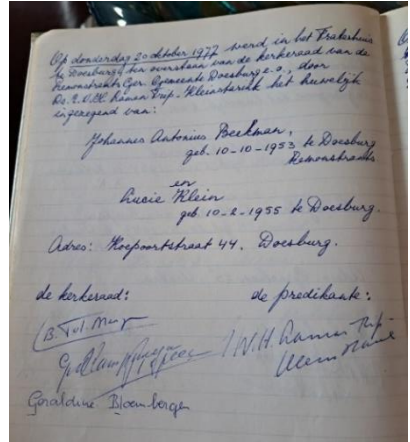 Op donderdag 20 oktober 1977 werd in het
te Doesburg, ten overstaan van de kerkeraad van de
Remonstrants Ger. Gemeente Doesburg e.o., door
Ds. Laman Trip-Kleinstarink het huwelijk
ingezegend van:
Johannes Antonius Beekman,
geb. 10-10-1953 te Doesburg
Remonstrants
en
Lucie Klein
geb. 10-2-1955 te Doesburg.
Adres: Koepoortstraat 44. Doesburg.
de kerkeraad: de predikante:
Laman Trip
Geraldine Bloembergen